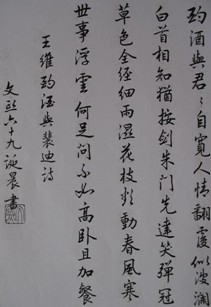 酌酒與君〻自寬人情翻覆似波瀾
白首相知猶按劍朱門先達笑彈冠
草色全經細雨濕花枝欲動春風寒
世事浮雲何足問不如高臥且加餐
王維酌酒與裴迪詩
六十九誕晨書